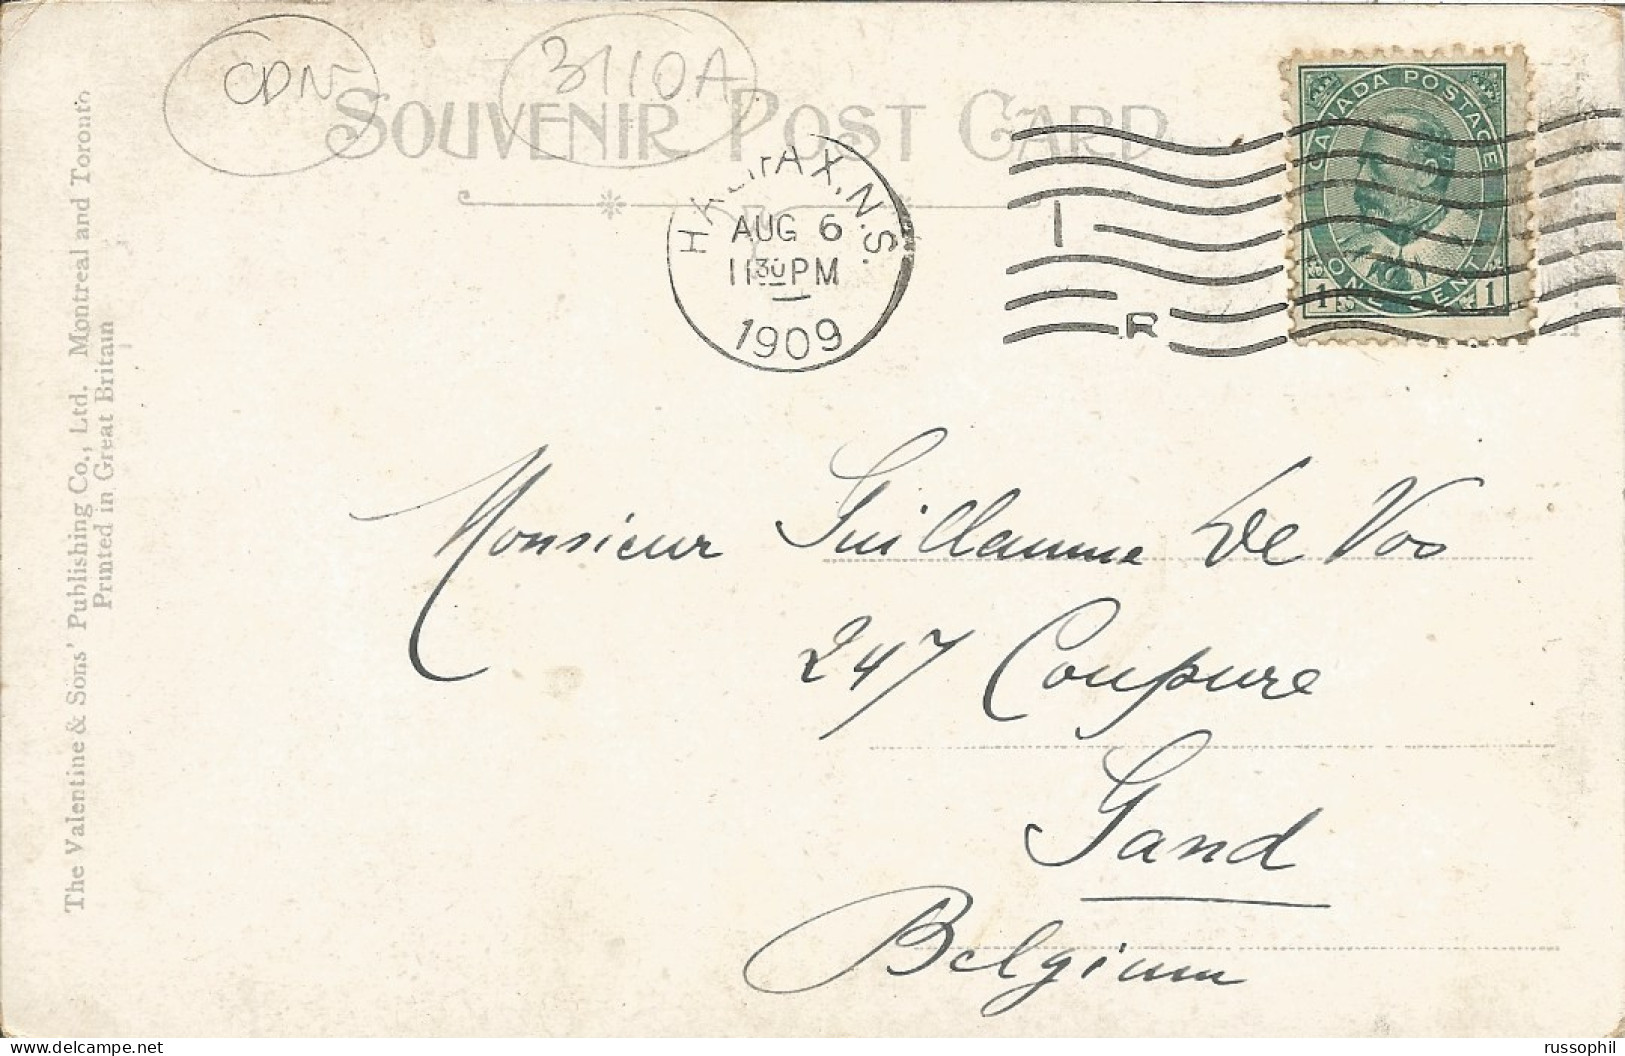 CDN
3110A
SOUVENIR POST CARD
HALIFAX, N.S.
AUG 6
1130PM
1909
1
R
CANADA POSTAGE
1 ONE CENT 1
The Valentine & Sons' Publishing Co., Ltd. Montreal and Toronto
Printed in Great Britain
Monsieur Guillaume De Vos
247 Coupure
Gand
Belgium
russophil